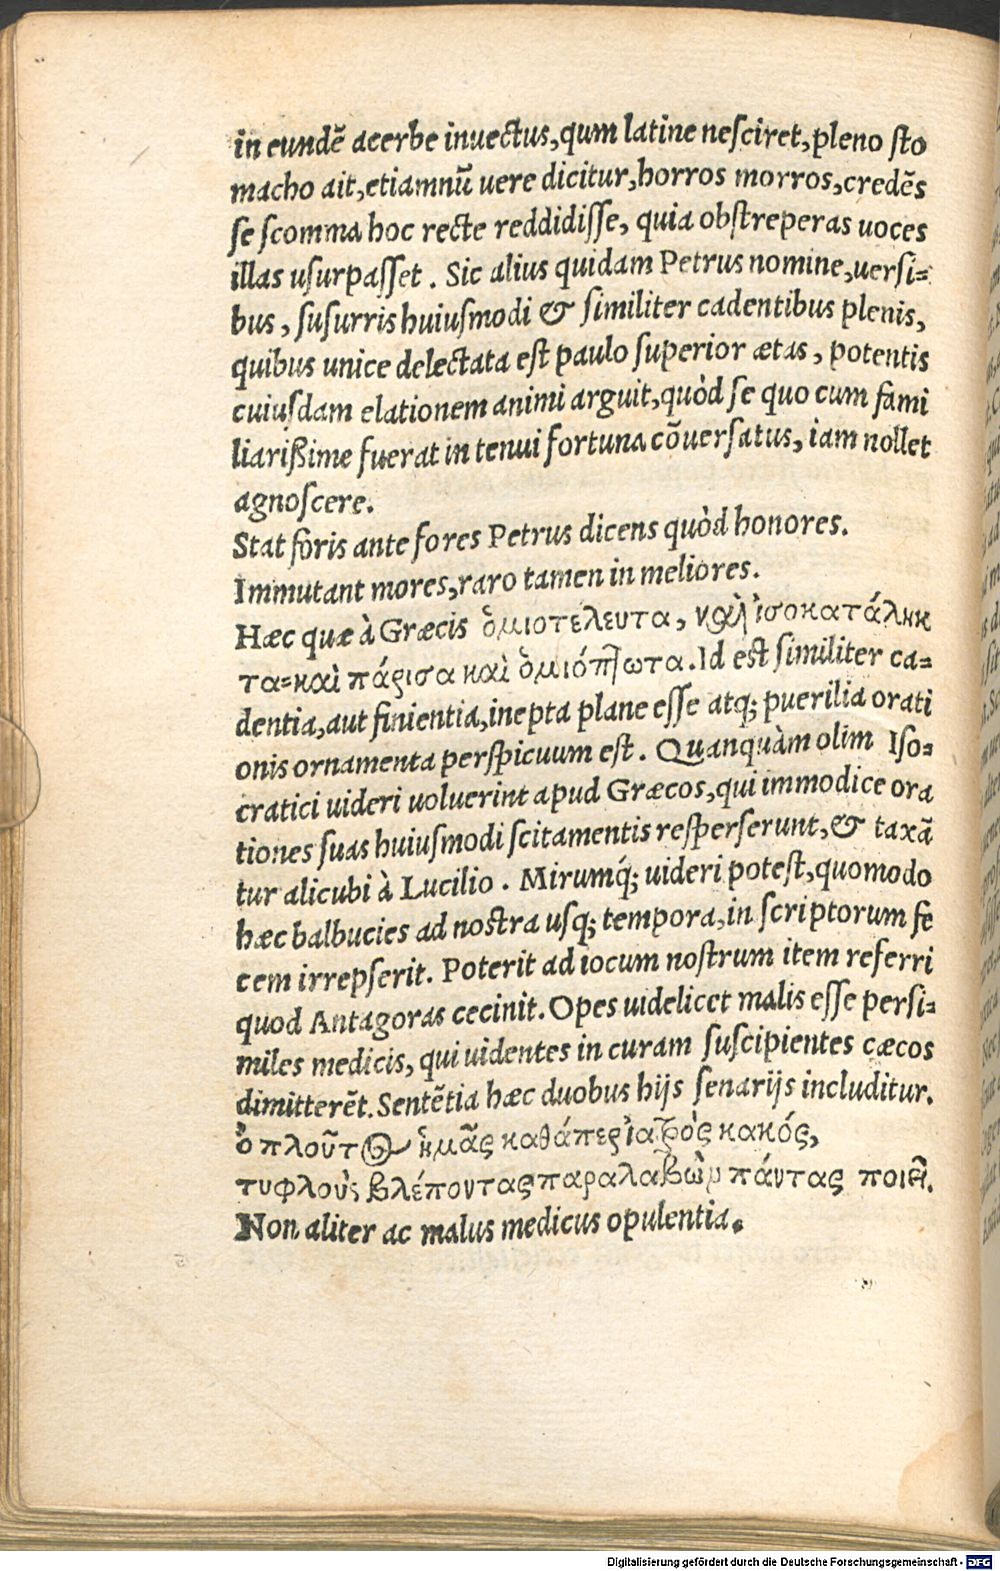 in eundē acerbe inuectus, qum latine nesciret, pleno sto
macho ait, etiamnū uere dicitur, horros morros, credēs
se scomma hoc recte reddidisse, quia obstreperas uoces
illas usurpasset. Sic alius quidam Petrus nomine, uersi-
bus, susurris huiusmodi & similiter cadentibus plenis,
quibus unice delectata est paulo superior ætas, potentis
cuiusdam elationem animi arguit, quòd se quo cum fami
liarißime fuerat in tenui fortuna cōuersatus, iam nollet
agnoscere.
Stat foris ante fores Petrus dicens quòd honores.
Immutant mores, raro tamen in meliores.
Hæc quæ à Græcis ὁμιοτέλευτα, καὶ ἰσοκατάληκ
τα-καὶ πάρισα καὶ ὁμιόπτωτα. Id est similiter ca-
dentia, aut finientia, inepta plane esse atq; puerilia orati
onis ornamenta perspicuum est. Quanquàm olim Iso-
cratici uideri uoluerint apud Græcos, qui immodice ora
tiones suas huiusmodi scitamentis resperserunt, & taxā
tur alicubi à Lucilio. Mirumq́; uideri potest, quomodo
hæc balbucies ad nostra usq; tempora, in scriptorum fe
cem irrepserit. Poterit ad iocum nostrum item referri
quod Antagoras cecinit. Opes uidelicet malis esse persi-
miles medicis, qui uidentes in curam suscipientes cæcos
dimitterēt. Sentētia hæc duobus hijs senarijs includitur.
ὁ πλοῦτος ἡμᾶς καθάπερ ἰατρὸς κακός,
τυφλοὺς βλέποντας παραλαβὼν πάντας ποιεῖ.
Non aliter ac malus medicus opulentia.
Digitalisierung gefördert durch die Deutsche Forschungsgemeinschaft - DFG